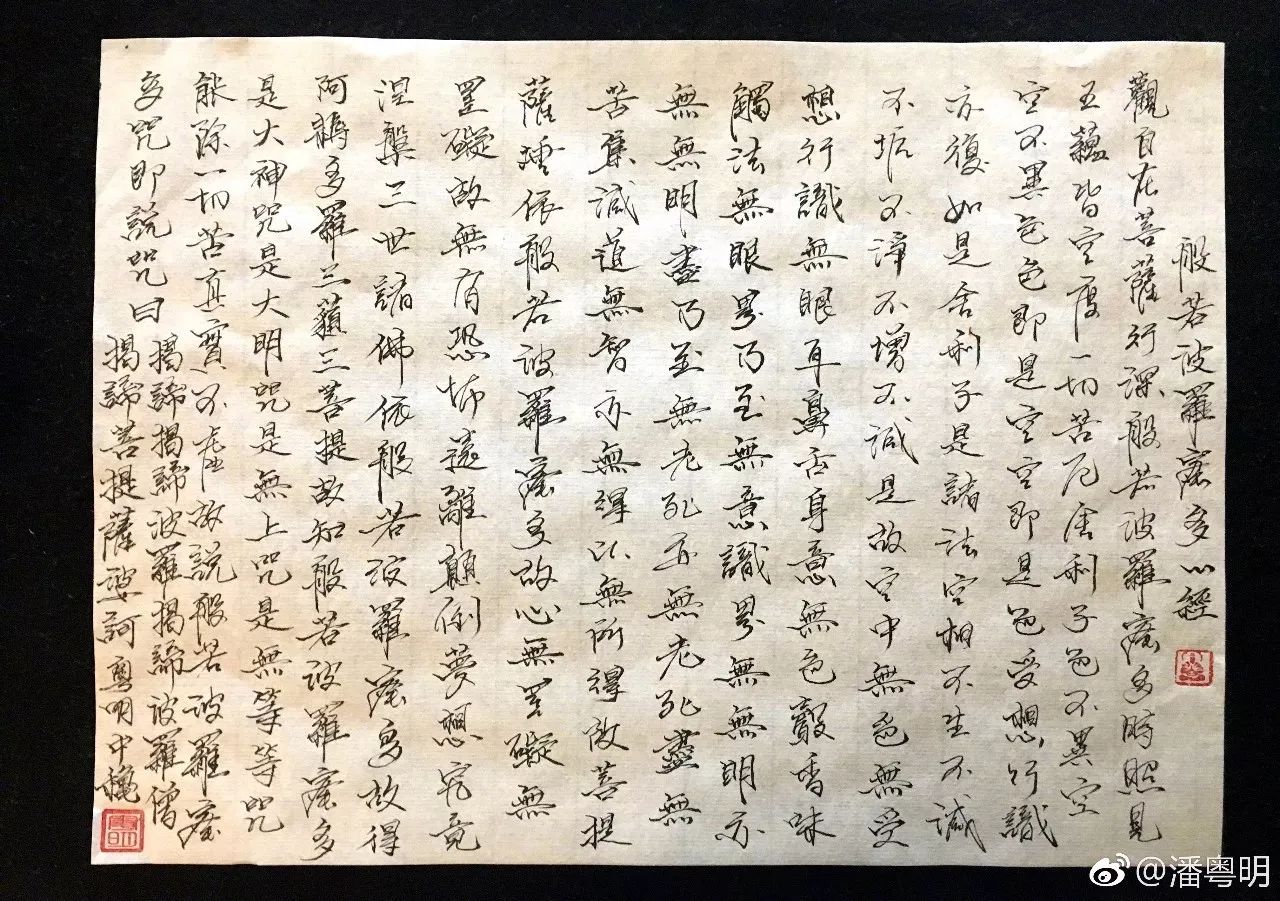 般若波羅蜜多心經
觀自在菩薩行深般若波羅蜜多時照見
五蘊皆空度一切苦厄舍利子色不異空
空不異色色即是空空即是色受想行識
亦復如是舍利子是諸法空相不生不滅
不垢不淨不增不減是故空中無色無受
想行識無眼耳鼻舌身意無色聲香味
觸法無眼界乃至無意識界無無明亦
無無明盡乃至無老死亦無老死盡無
苦集滅道無智亦無得以無所得故菩提
薩埵依般若波羅蜜多故心無罣礙無
罣礙故無有恐怖遠離顛倒夢想究竟
涅槃三世諸佛依般若波羅蜜多故得
阿耨多羅三藐三菩提故知般若波羅蜜多
是大神咒是大明咒是無上咒是無等等咒
能除一切苦真實不虛故說般若波羅蜜
多咒即說咒曰
揭諦揭諦波羅揭諦波羅僧
揭諦菩提薩婆訶 粵明中穐
@潘粤明